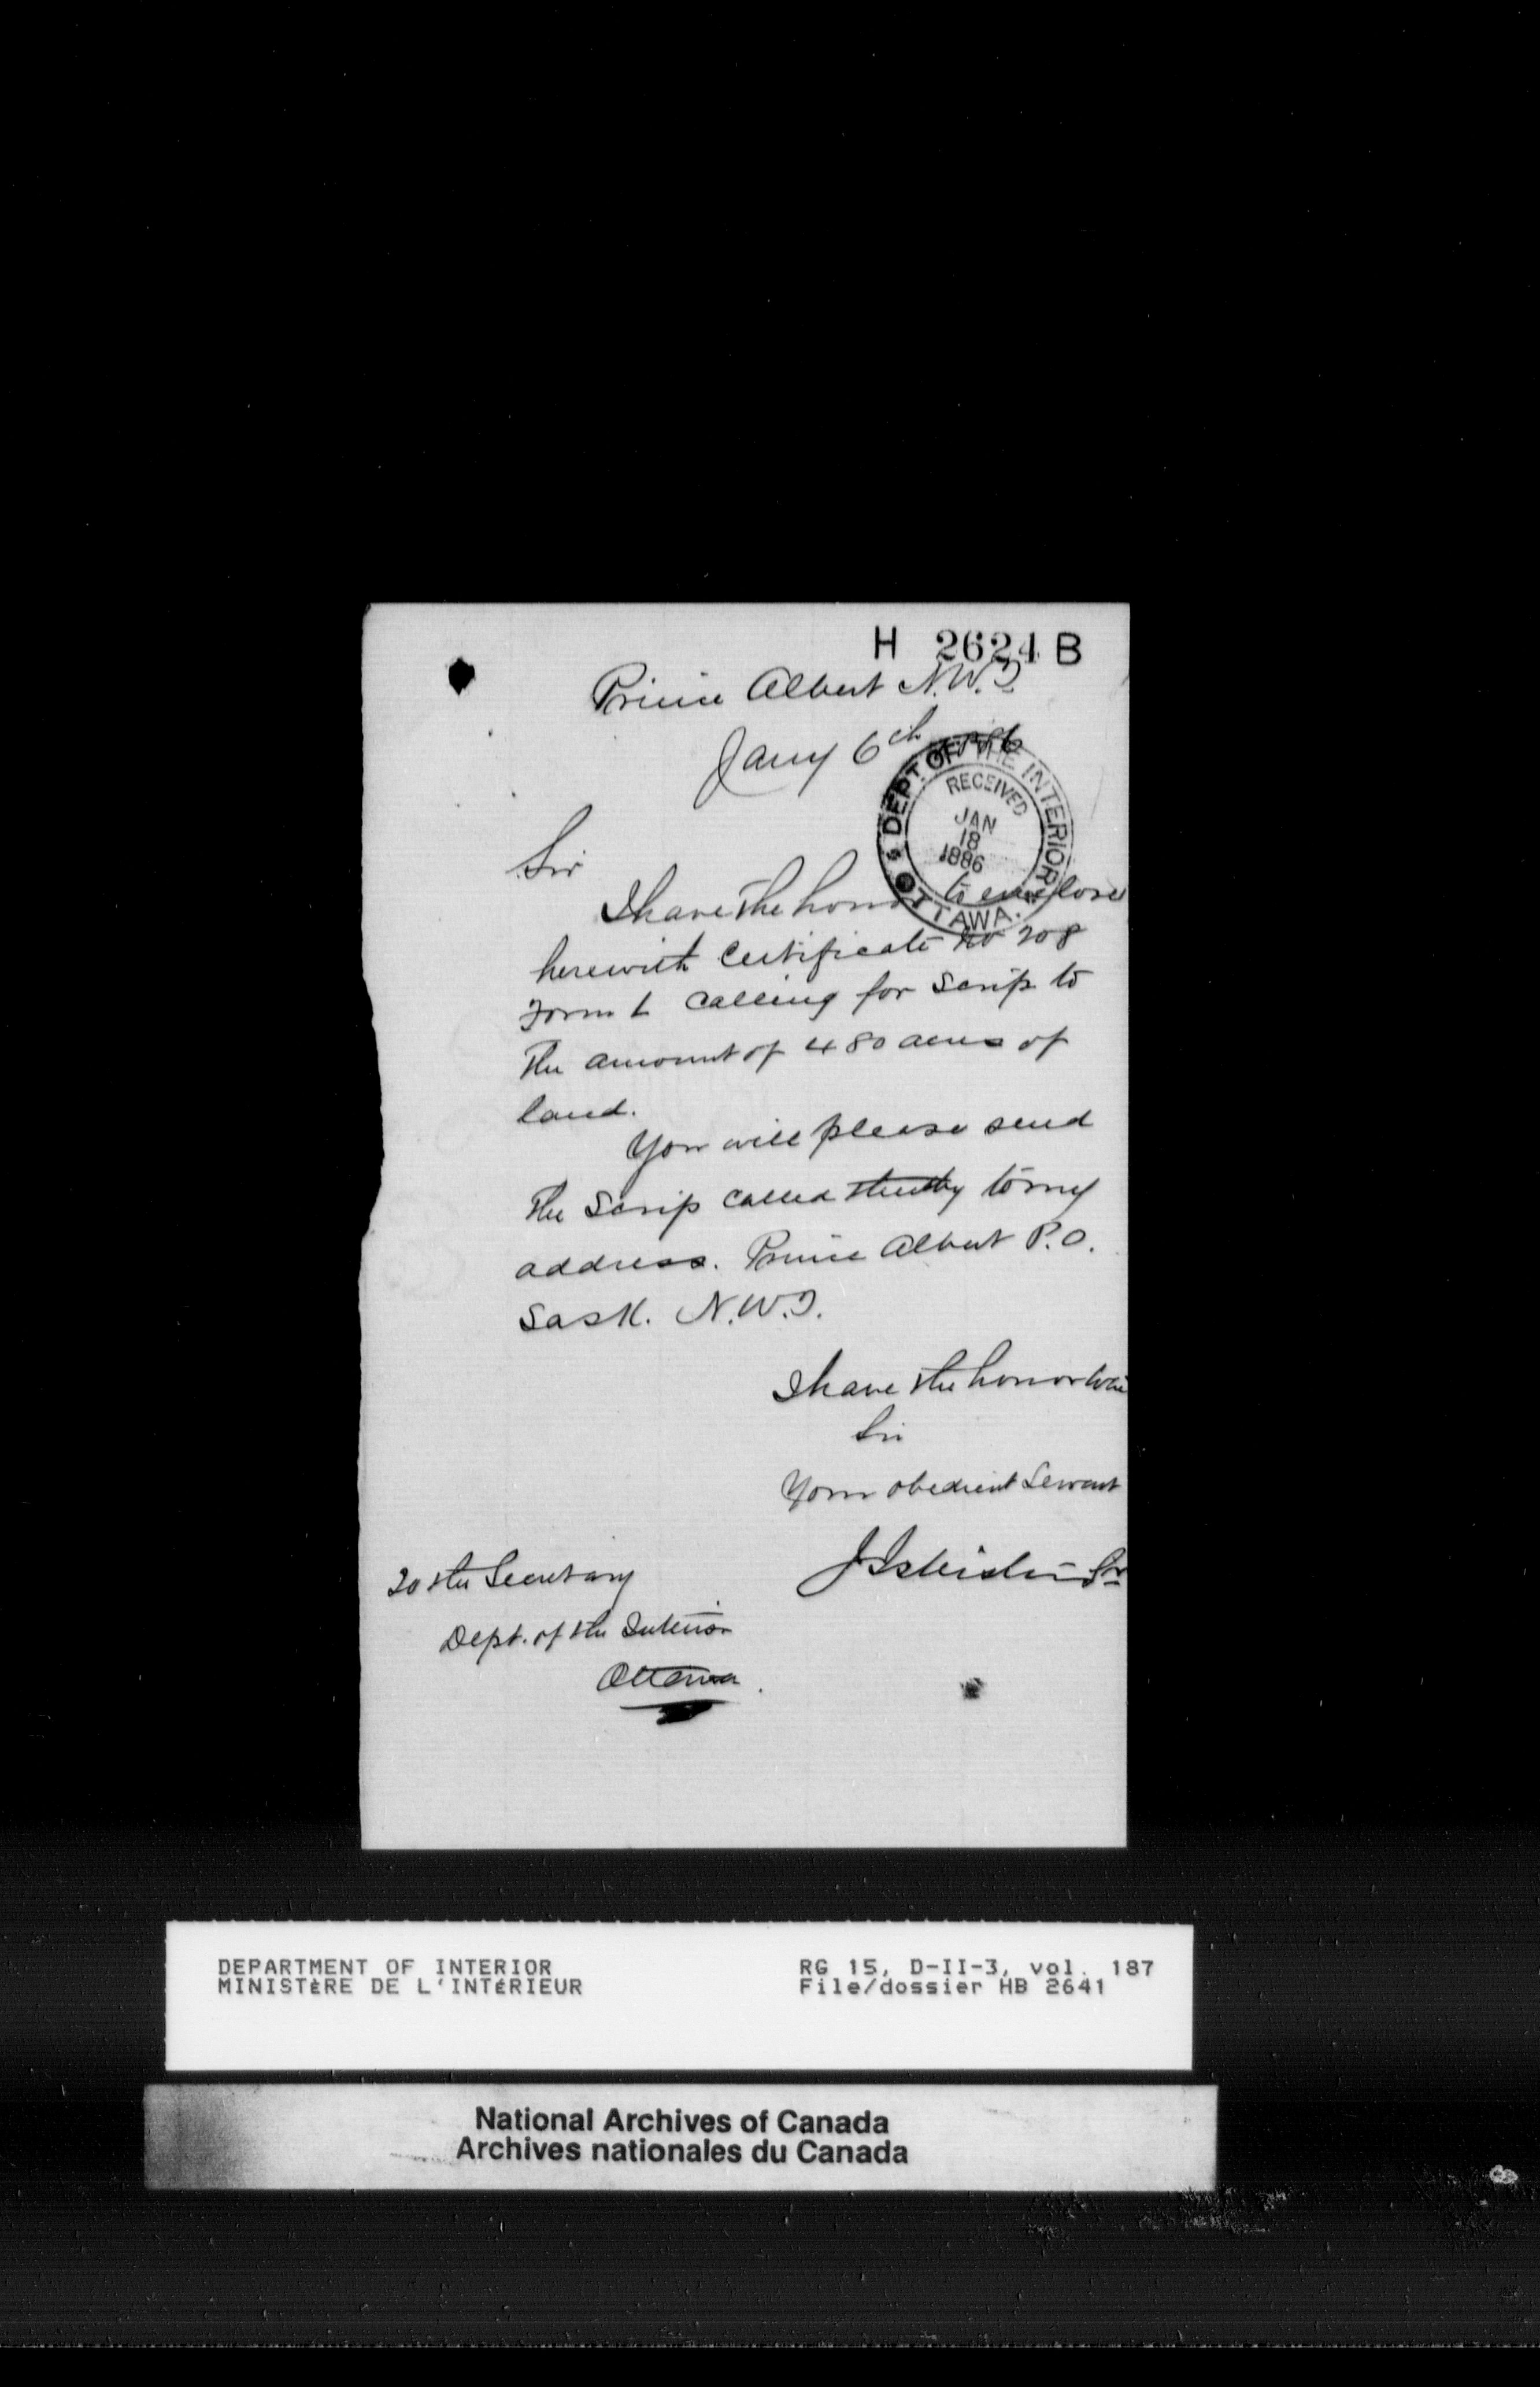 H 2624 B
Prince Albert N.W.T.
Jany 6th
DEPT. OF THE INTERIOR
RECEIVED
JAN
18
1886
OTTAWA.
Sir
I have the honor to enclose
herewith Certificate No 208
Form L calling for Scrip to
the amount of 480 acres of
land.
You will please send
the Scrip called thereby to my
address. Prince Albert P.O.
Sask. N.W.T.
I have the honor to be
Sir
Your obedient Servant
J Isbister Sr
To the Secretary
Dept. of the Interior
Ottawa.
DEPARTMENT OF INTERIOR
MINISTÈRE DE L'INTÉRIEUR
RG 15, D-II-3, vol. 187
File/dossier HB 2641
National Archives of Canada
Archives nationales du Canada